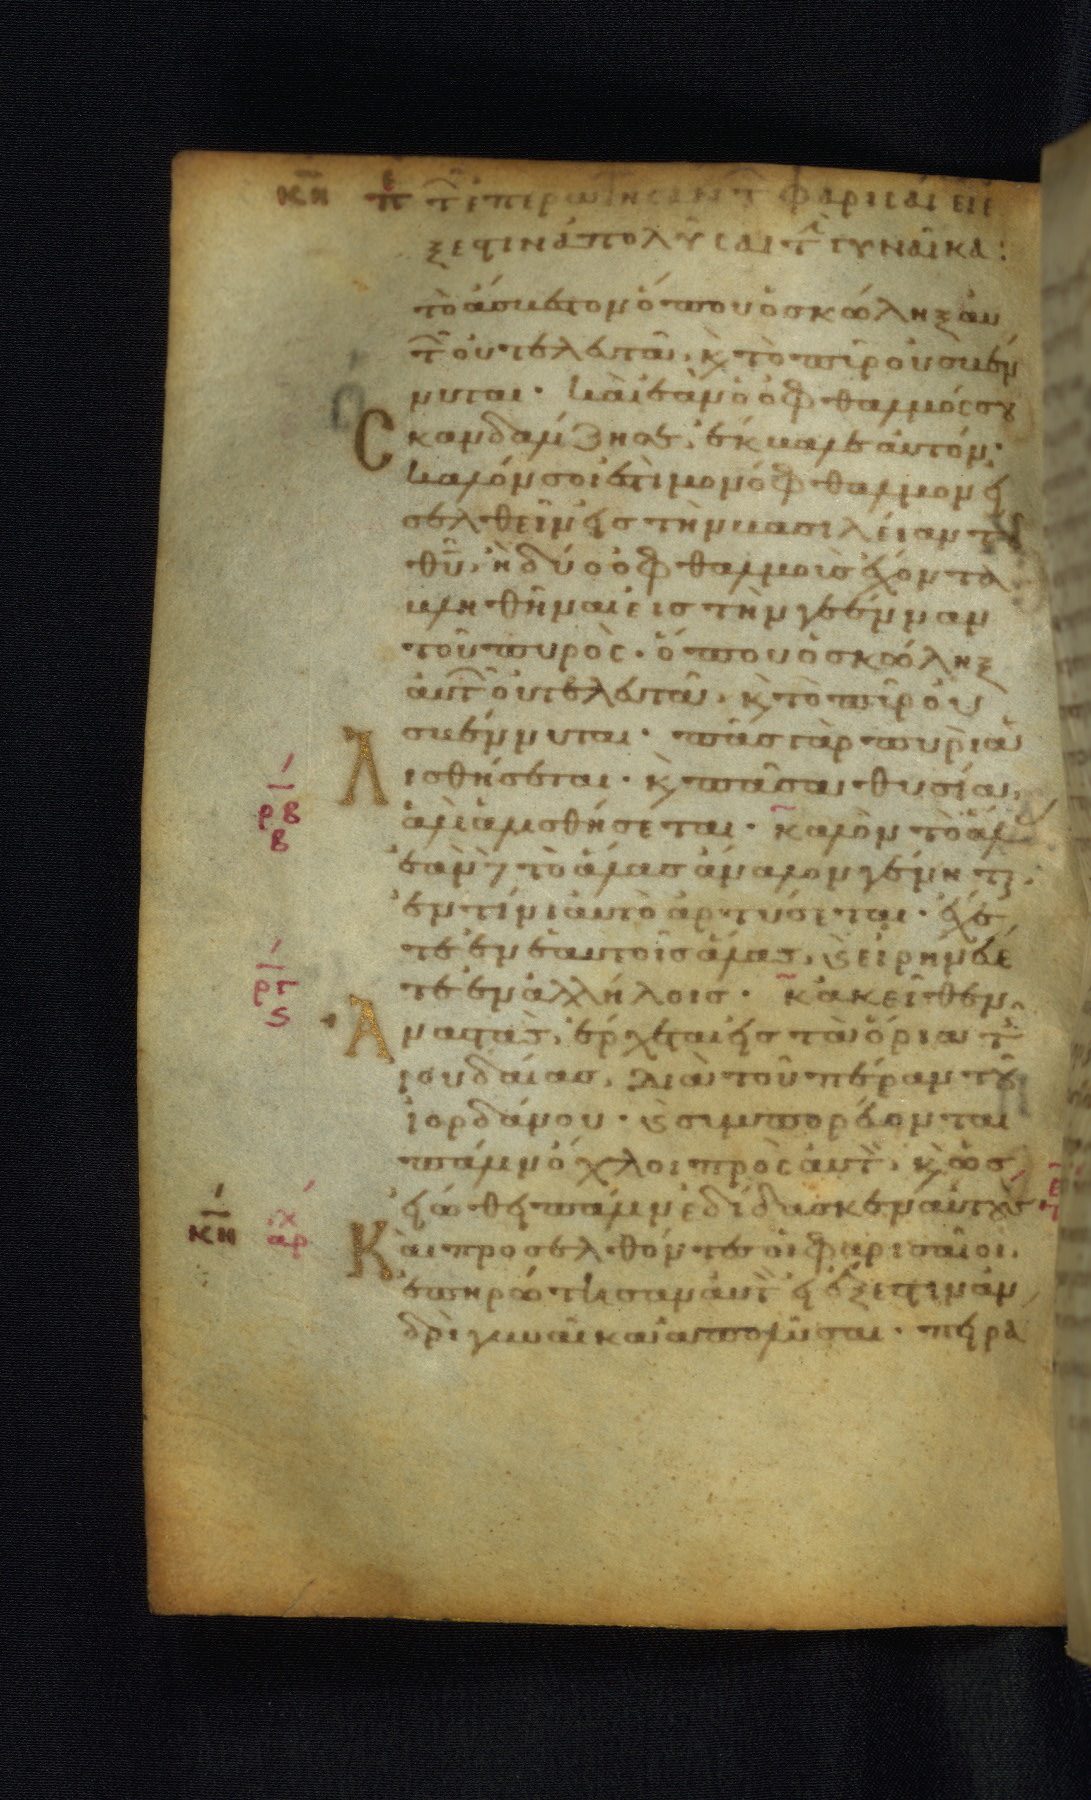 κη π τ̑ ἐπερωτησαντ φαρισαι ει ἐ
ξεστιν ἀπολῦσαι τ̑ γυναῖκα:
το ἄσβεστον ὅπου ὁ σκώληξ ἀυ
τ̑ ὀυ τελευτᾶ, κ̀ τὸ πῦρ ὀυ σβέν
νυται. και ἐὰν ὁ ὀφθαλμός σου
σκανδαλίζη σε, ἔκβαλε ἀυτόν.
καλόν σοι ἐστὶ μονόφθαλμον εἰ
σελθεῖν εἰς τὴν βασιλείαν τοῦ
θῦ, ἢ δύο ὀφθαλμοὺς ἔχοντα
βληθῆναι εις τὴν γέενναν
τοῦ πυρὸς. ὅπου ὁ σκώληξ
ἀυτ̑ ὀυ τελευτᾶ, κ̀ τὸ πῦρ ὀυ
σβέννυται. πᾶς γὰρ πυρὶ ἁ
λισθήσεται. κ̀ πᾶσα θυσία,
ἁλὶ ἁλισθήσεται. καλὸν τὸ ἅλας
ἐὰν δὲ τὸ ἅλας ἄναλον γένηται,
ἐν τίνι ἀυτὸ ἀρτύσεται. ἔχε
τε ἐν ἑαυτοῖς ἅλας, κ̀ εἰρηνεύε
τε ἐν ἀλλήλοις. κἀκεῖθεν
ἀναστὰς, ἔρχεται εἰς τὰ ὅρια τ̑
ιουδαίας, διὰ τοῦ πέραν τοῦ
ἰορδάνου. κ̀ συμπορέυονται
πάλιν ὄχλοι πρὸς ἀυτ̀, κ̀ ὡς
εἰώθει πάλιν ἐδίδασκεν ἀυτούς
κη αρχ Και προσελθόντες οἱ φαρισαῖοι,
ἐπηρώτησαν ἀυτ̀ εἰ ἔξεστιν ἀν
δρὶ γυναῖκα ἀπολῦσαι. πειρά
ρβ
β
ργ
ς